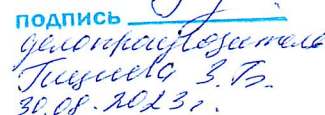 подпись
делопроизводитель
З. Б.
30.08.2023г.